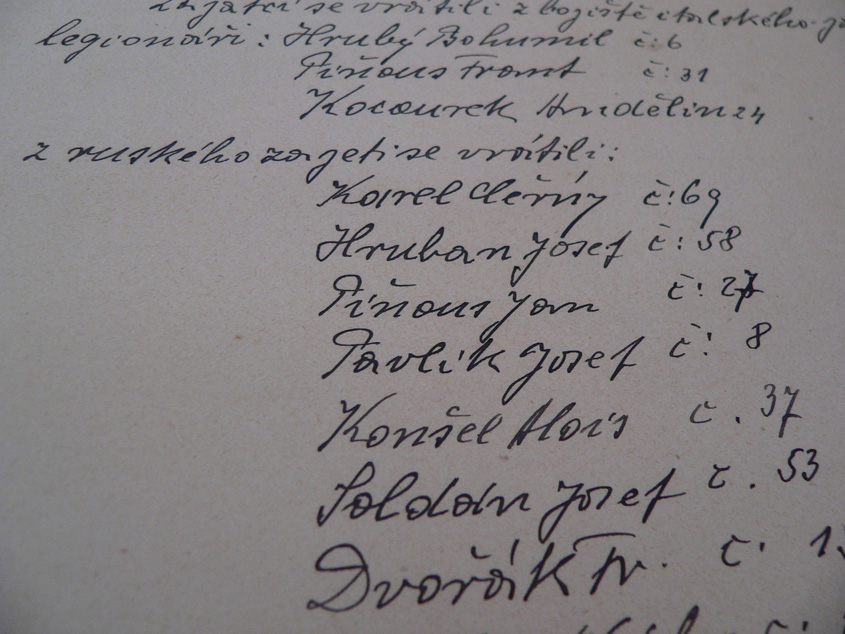 Zajatci se vrátili z bojiště italského
legionáři: Hrubý Bohumil č:6
Piňous Frant č:31
Kocourek 24
z ruského zajetí se vrátili:
Karel Černý č:69
Hruban Josef č:58
Piňous Jan č:27
Pavlík Josef č: 8
Konšel Alois č. 37
Soldán Josef č. 53
Dvořák Fr. č.